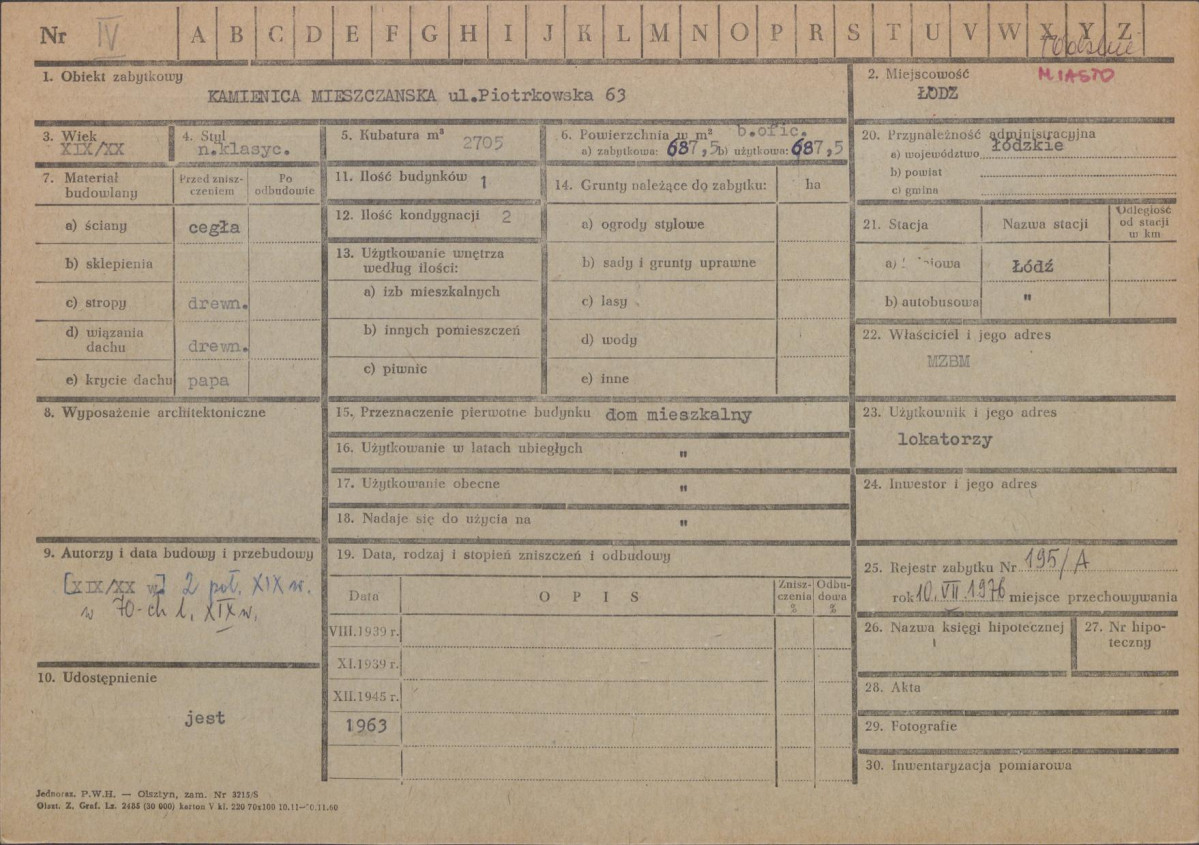 Nr IV A B C D E F G H I J K L M N O P R S T U V W X Y Z
1. Obiekt zabytkowy
KAMIENICA MIESZCZANSKA ul.Piotrkowska 63
2. Miejscowość
MIASTO
ŁODZ
3. Wiek
XIX/XX
4. Styl
n.klasyc.
5. Kubatura m³
2705
6. Powierzchnia w m² b.ofic.
a) zabytkowa: 687,5 b) użytkowa: 687,5
20. Przynależność administracyjna
a) województwo łódzkie
b) powiat
c) gmina
7. Materiał budowlany
Przed zniszczeniem
Po odbudowie
a) ściany cegła
b) sklepienia
c) stropy drewn.
d) wiązania dachu drewn.
e) krycie dachu papa
11. Ilość budynków 1
12. Ilość kondygnacji 2
13. Użytkowanie wnętrza
według ilości:
a) izb mieszkalnych
b) innych pomieszczeń
c) piwnic
14. Grunty należące do zabytku: ha
a) ogrody stylowe
b) sady i grunty uprawne
c) lasy
d) wody
e) inne
21. Stacja Nazwa stacji
Odległość
od stacji
w km
a) Łódź
b) autobusowa "
22. Właściciel i jego adres
MZBM
8. Wyposażenie architektoniczne
15. Przeznaczenie pierwotne budynku dom mieszkalny
16. Użytkowanie w latach ubiegłych "
17. Użytkowanie obecne "
18. Nadaje się do użycia na "
23. Użytkownik i jego adres
lokatorzy
24. Inwestor i jego adres
9. Autorzy i data budowy i przebudowy
[XIX/XX w] 2 poł. XIX w.
w 70-ch l. XIX w.
10. Udostępnienie
jest
19. Data, rodzaj i stopień zniszczeń i odbudowy
Data OPIS
Zniszczenia %
Odbudowa %
VIII.1939 r.
XI.1939 r.
XII.1945 r.
1963
25. Rejestr zabytku Nr 195/A
rok 10.VII.1976 miejsce przechowywania
26. Nazwa księgi hipotecznej
27. Nr hipoteczny
28. Akta
29. Fotografie
30. Inwentaryzacja pomiarowa
Jednoraz. P.W.H. — Olsztyn, zam. Nr 3215/S
Olszt. Z. Graf. Lz. 2488 (30 000) karton V kl. 220 70x100